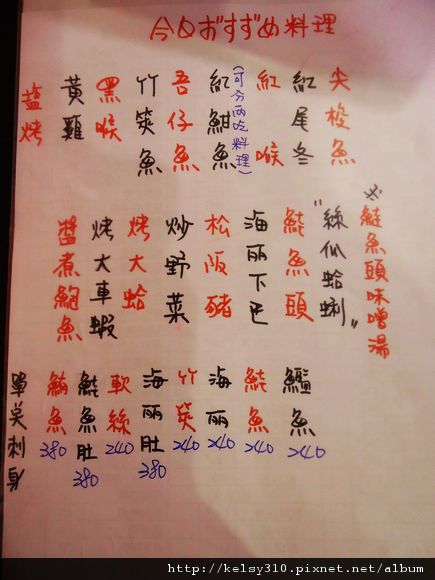 今日おすすめ料理
尖梭魚
紅尾冬
紅喉
紅魽魚
(可分兩吃料理)
吾仔魚
竹筴魚
黑喉
黃雞
鹽烤
※鮭魚頭味噌湯
"絲瓜蛤蜊"
鮭魚頭
海鱺下巴
松阪豬
炒野菜
烤大蛤
烤大車蝦
醬煮鮑魚
魚 240
鮭魚 240
海鱺 240
竹筴 240
海鱺肚 380
軟絲 240
鮭魚肚 380
鮪魚 380
單點刺身
http://kelsy310.pixnet.net/album